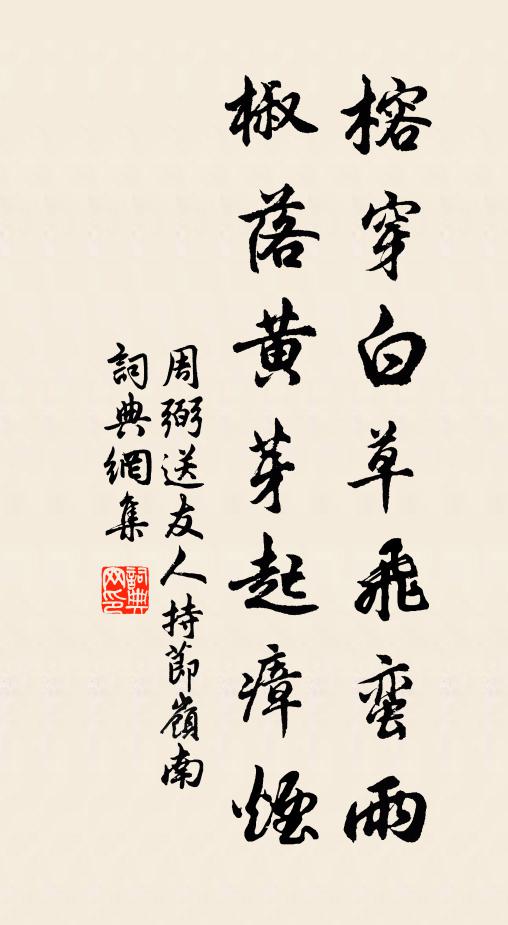 榕穿白草飛蛮雨
椒落黄芽起瘴煙
周弼送友人持節嶺南
詞典網集